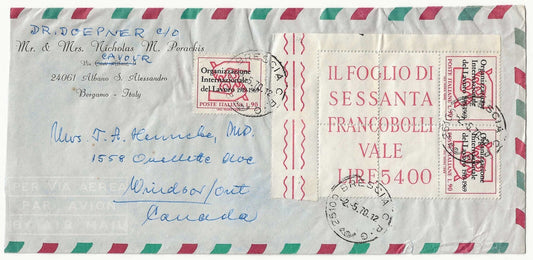 DR. DOEPNER C/O
Mr. & Mrs. Nicholas M. Perackis
CAVOUR
24061 Albano S. Alessandro
Bergamo - Italy
Organizzazione
Internazionale
del Lavoro 1919-1969
POSTE ITALIANE L. 90
BRESCIA C.P.
IL FOGLIO DI
SESSANTA
FRANCOBOLLI
VALE
LIRE 5400
Organizzazione
Internazionale
del Lavoro 1919-1969
POSTE ITALIANE L. 90
Organizzazione
Internazionale
del Lavoro 1919-1969
POSTE ITALIANE L. 90
25100 BRESCIA C.P.
-2.-5.70.12
1558 Ouellette Ave
Windsor/ont
Canada
PAR AVION